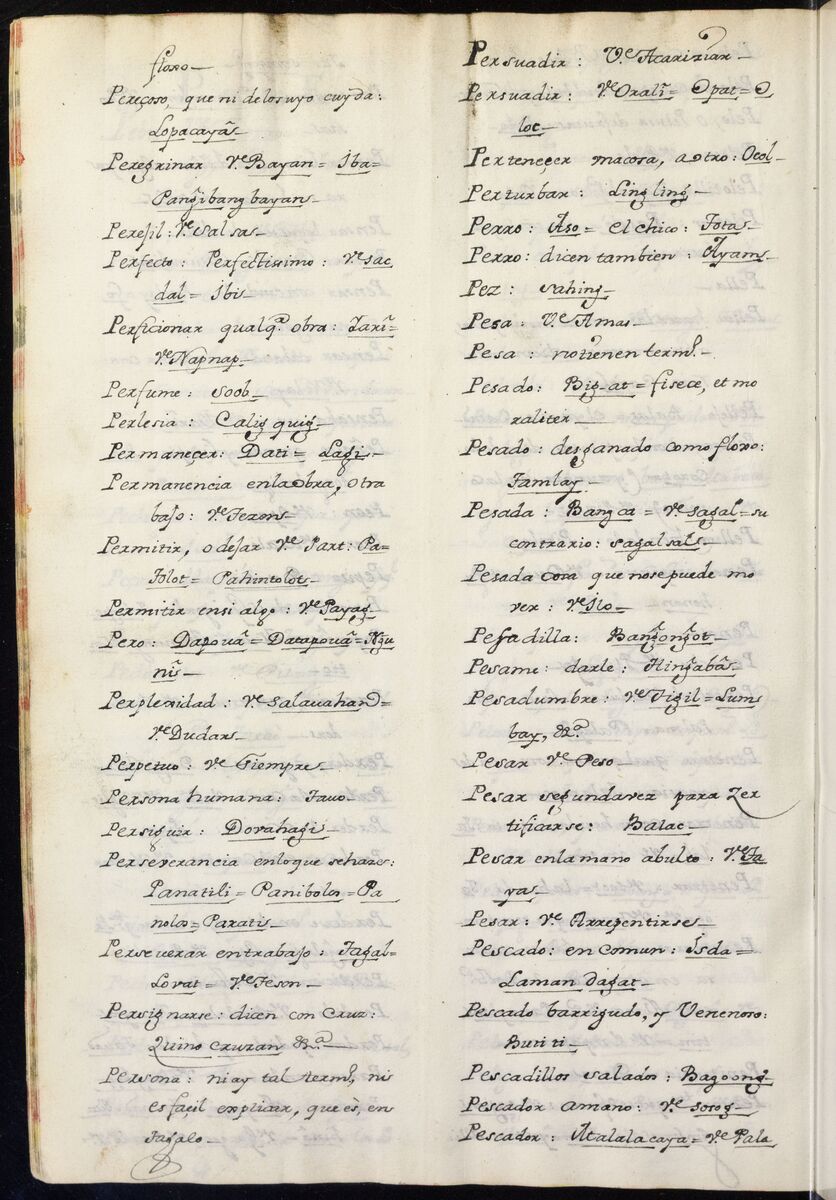 floxo_
Pereçoso, que ni delosuyo cuyda:
Lopacayã_
Peregrinar Vᵉ Bayan= Iba=
Pang̃ibang bayan_
Perejil: Vᵉ salsas_
Perfecto: Perfectissimo: Vᵉ sac
dal= Ibis_
Perficionar qualqᵃ obra: Tarĩ=
Vᵉ Napnap_
Perfume: soob_
Perlesia: Calig quig_
Permaneçer: Dati= Lagi_
Permanencia enlaobra, otra
bajo: Vᵉ Tezon_
Permitir, o dejar Vᵉ Part: Pa=
Tolot= Pahintolot_
Permitir ensi algo: Vᵉ Payag_
Pero: Dapouã= Datapouã= Ngu
nĩ_
Perplexidad: Vᵉ salauahan=
Vᵉ Dudar_
Perpetuo: Vᵉ Siempre_
Persona humana: Tauo_
Persiguir: Dovahagi_
Perseverancia enloque sehazes:
Panatili= Panibolos= Pa
nolos= Paratis_
Perseuerar en trabajo: Tagal=
Lovat= Vᵉ Teson_
Persignarse: dicen con Cruz:
Quino cruzan &ᵃ_
Persona: niay tal termᵒ, ni
es façil explicar, que ès, en
Tagalo_
Persuadir: Vᵉ Acariziar_
Persuadir: Vᵉ Oralĩ= Opat= O
loc_
Perteneçer macosa, a otro: Ocol_
Perturbar: Ling ling_
Perro: Aso= el chico: Tota_
Perro: dicen tambien: Ayam_
Pez: sahing_
Pesa: Vᵉ Amas_
Pesa: notienen termᵒ_
Pesado: Big-at= fisece, et mo
raliter_
Pesado: desganado como floxo:
Tamlay_
Pesada: Bangca= Vᵉ sagal= su
contrario: sagalsal_
Pesada cosa que nosepuede mo
ver: Vᵉ Ilo_
Pesadilla: Bang̃ong̃ot_
Pesame: darle: Hing̃abã_
Pesadumbre: Vᵉ Tigil= Lum
bay, &ᵃ_
Pesar Vᵉ Peso_
Pesar segundavez para Zer
tificarse: Balac_
Pesar enlamano abulto: Vᵉ Ta
yas_
Pesar: Vᵉ Arrepentirse_
Pescado: en comun: Isda=
Laman dagat_
Pescado barrigudo, y Venenoso:
Butiti_
Pescadillos salados: Bagoong_
Pescador amano: Vᵉ sosog_
Pescador: Atalalacaya= Vᵉ Pala